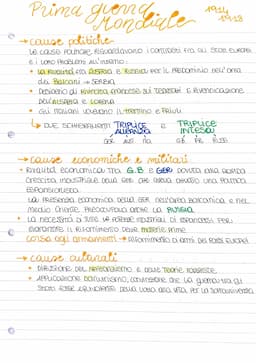 Prima guerra
Mondiale
1914
1918
→ cause politiche
Le cause politiche riguardavano i contrasti tra gli stati europei
e i loro problemi all'interno:
• la rivalità tra Austria e Russia per il predominio nell'area
dei Balcani → SERBIA
• Desiderio di rivincita francese sui tedeschi e rivendicazione
dell'Alsazia e Lorena
• Gli italiani volevano il Trentino e Friuli
↳ DUE SCHIERAMENTI TRIPLICE E TRIPLICE
ALLEANZA INTESA
GER AUS ITA GB FR RUSS
→ cause economiche e militari
• Rivalità economica tra G.B e GER dovuta alla rapida
crescita industriale della GER che aveva avviato una politica
espansionista
• La presenza economica della GER nell'area balcanica e nel
medio oriente preoccupava anche la RUSSIA
• La necessità di tutte le potenze industriali di espandersi per
garantire il rifornimento delle materie prime
corsa agli armamenti → Rifornimento di armi dei paesi europei
→ cause culturali
• Diffusione del nazionalismo e delle teorie razziste
• Applicazione darwinismo, convinzione che la guerra tra gli
stati fosse la lotta per la sopravvivenza